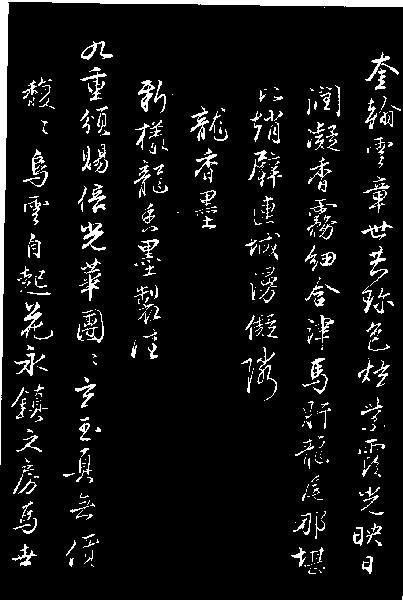 奎翰雲章世共珍色燃紫霞光映日
潤凝香霧細含津馬肝龍尾那堪
比趙璧連城漫儗隣
龍香墨
新樣龍香墨製注
九重須賜倍光華團〻玄玉真無價
馥〻烏雲自起花永鎮文房烏世